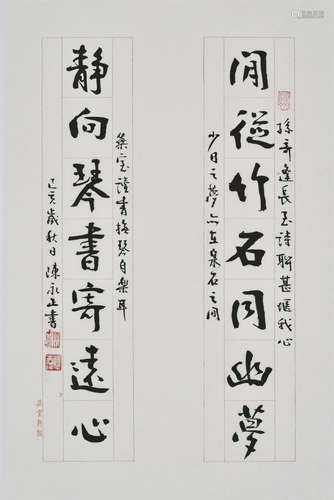 閒從竹石同幽夢
孫奇逢長至詩聯甚堪我心
少日之夢亦在泉石之間
静向琴書寄遠心
集室讀書撫琴自樂耳
己亥歲秋日陳永正書